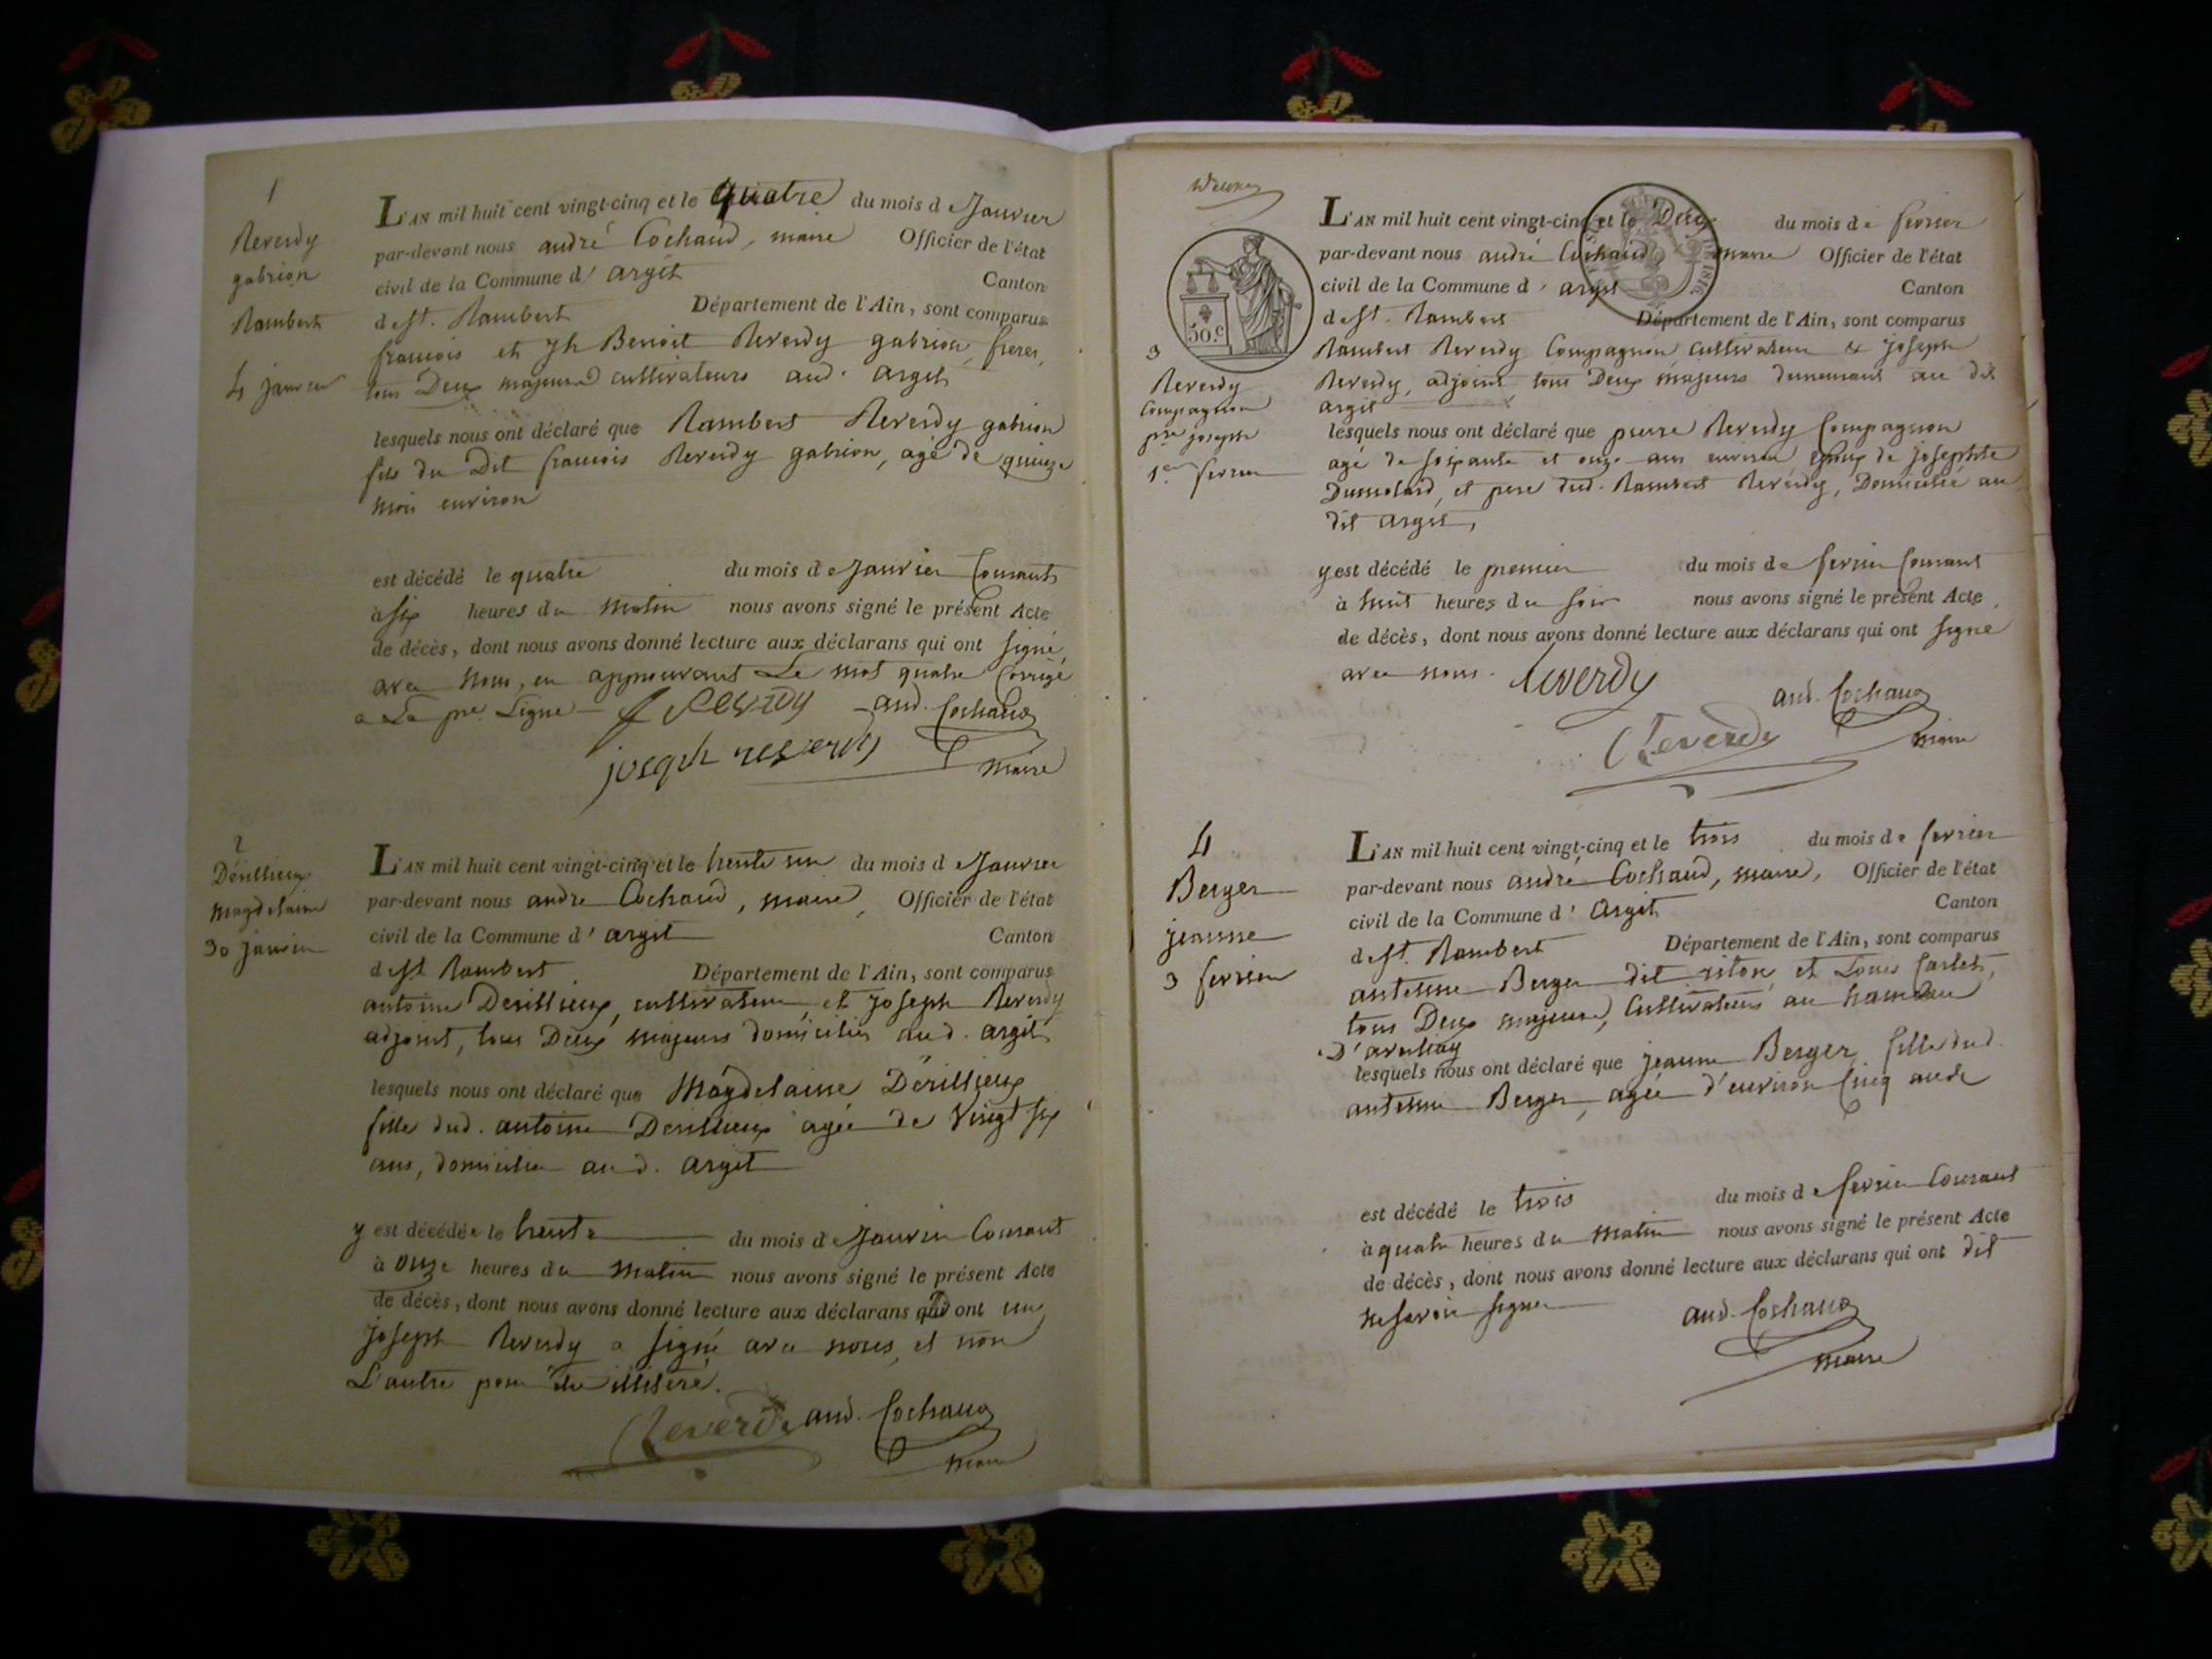 1
Reverdy
gabrion
Rambert
4 janvier
L'AN mil huit cent vingt-cinq et le quatre du mois d e Janvier
par-devant nous andré Cochaud, maire Officier de l'état
civil de la Commune d' argit Canton
de St. Rambert Département de l'Ain, sont comparus
francois et Jh Benoit Reverdy gabrion, freres,
tous Deux majeurs cultivateurs aud. argit
lesquels nous ont déclaré que Rambert Reverdy gabrion
fils du Dit francois Reverdy gabrion, agé de quinze
mois environ
est décédé le quatre du mois d e Janvier Courant
à six heures du matin nous avons signé le présent Acte
de décès, dont nous avons donné lecture aux déclarans qui ont signé,
avec nous, en approuvant Le mot quatre Corrigé
a La pre. Ligne
f reverdy and. Cochaud
joseph reverdy maire
2
Dérillieux
magdelaine
30 janvier
L'AN mil huit cent vingt-cinq et le trente un du mois d e Janvier
par-devant nous andre Cochaud, maire, Officier de l'état
civil de la Commune d' argit Canton
de St. Rambert Département de l'Ain, sont comparus
antoine Derillieux, cultivateur, et Joseph Reverdy
adjoint, tous Deux majeurs domiciliés aud. argit
lesquels nous ont déclaré que Magdelaine Dérillieux
fille dud. antoine Derillieux agée de Vingt six
ans, domiciliée aud. argit
y est décédée le trente du mois d e Janvier Courant
à onze heures du matin nous avons signé le présent Acte
de décès, dont nous avons donné lecture aux déclarans ont
joseph Reverdy a signé avec nous, et non
L'autre pour être illiteré.
Reverdy and. Cochaud
maire
3
Reverdy
Compagnon
pre joseph
1er fevrier
50.c
1816
L'AN mil huit cent vingt-cinq et le Deux du mois d e fevrier
par-devant nous andré Cochaud, maire Officier de l'état
civil de la Commune d' argit Canton
de St. Rambert Département de l'Ain, sont comparus
Rambert Reverdy Compagnon, Cultivateur & Joseph
Reverdy, adjoint, tous Deux majeurs demeurant au dit
argit
lesquels nous ont déclaré que pierre Reverdy Compagnon
agé de soixante et onze ans environ époux de josephte
Dumolard, et pere dud. Rambert Reverdy, Domicilié au
dit argit,
y est décédé le premier du mois de fevrier Courant
à huit heures du soir nous avons signé le présent Acte
de décès, dont nous avons donné lecture aux déclarans qui ont signé
avec nous. Reverdy and. Cochaud
Reverdy maire
4
Berger
jeanne
3 fevrier
L'AN mil huit cent vingt-cinq et le trois du mois d e fevrier
par-devant nous andré Cochaud, maire, Officier de l'état
civil de la Commune d' Argit Canton
de St. Rambert Département de l'Ain, sont comparus
antoine Berger dit riton, et Louis Carlet,
tous Deux majeurs, Cultivateurs au hameau
D'averliay
lesquels nous ont déclaré que jeanne Berger fille dud.
antoine Berger, agée d'environ Cinq ans
est décédé le trois du mois d e fevrier Courant
à quatre heures du matin nous avons signé le présent Acte
de décès, dont nous avons donné lecture aux déclarans qui ont dit
ne savoir signer and. Cochaud
maire